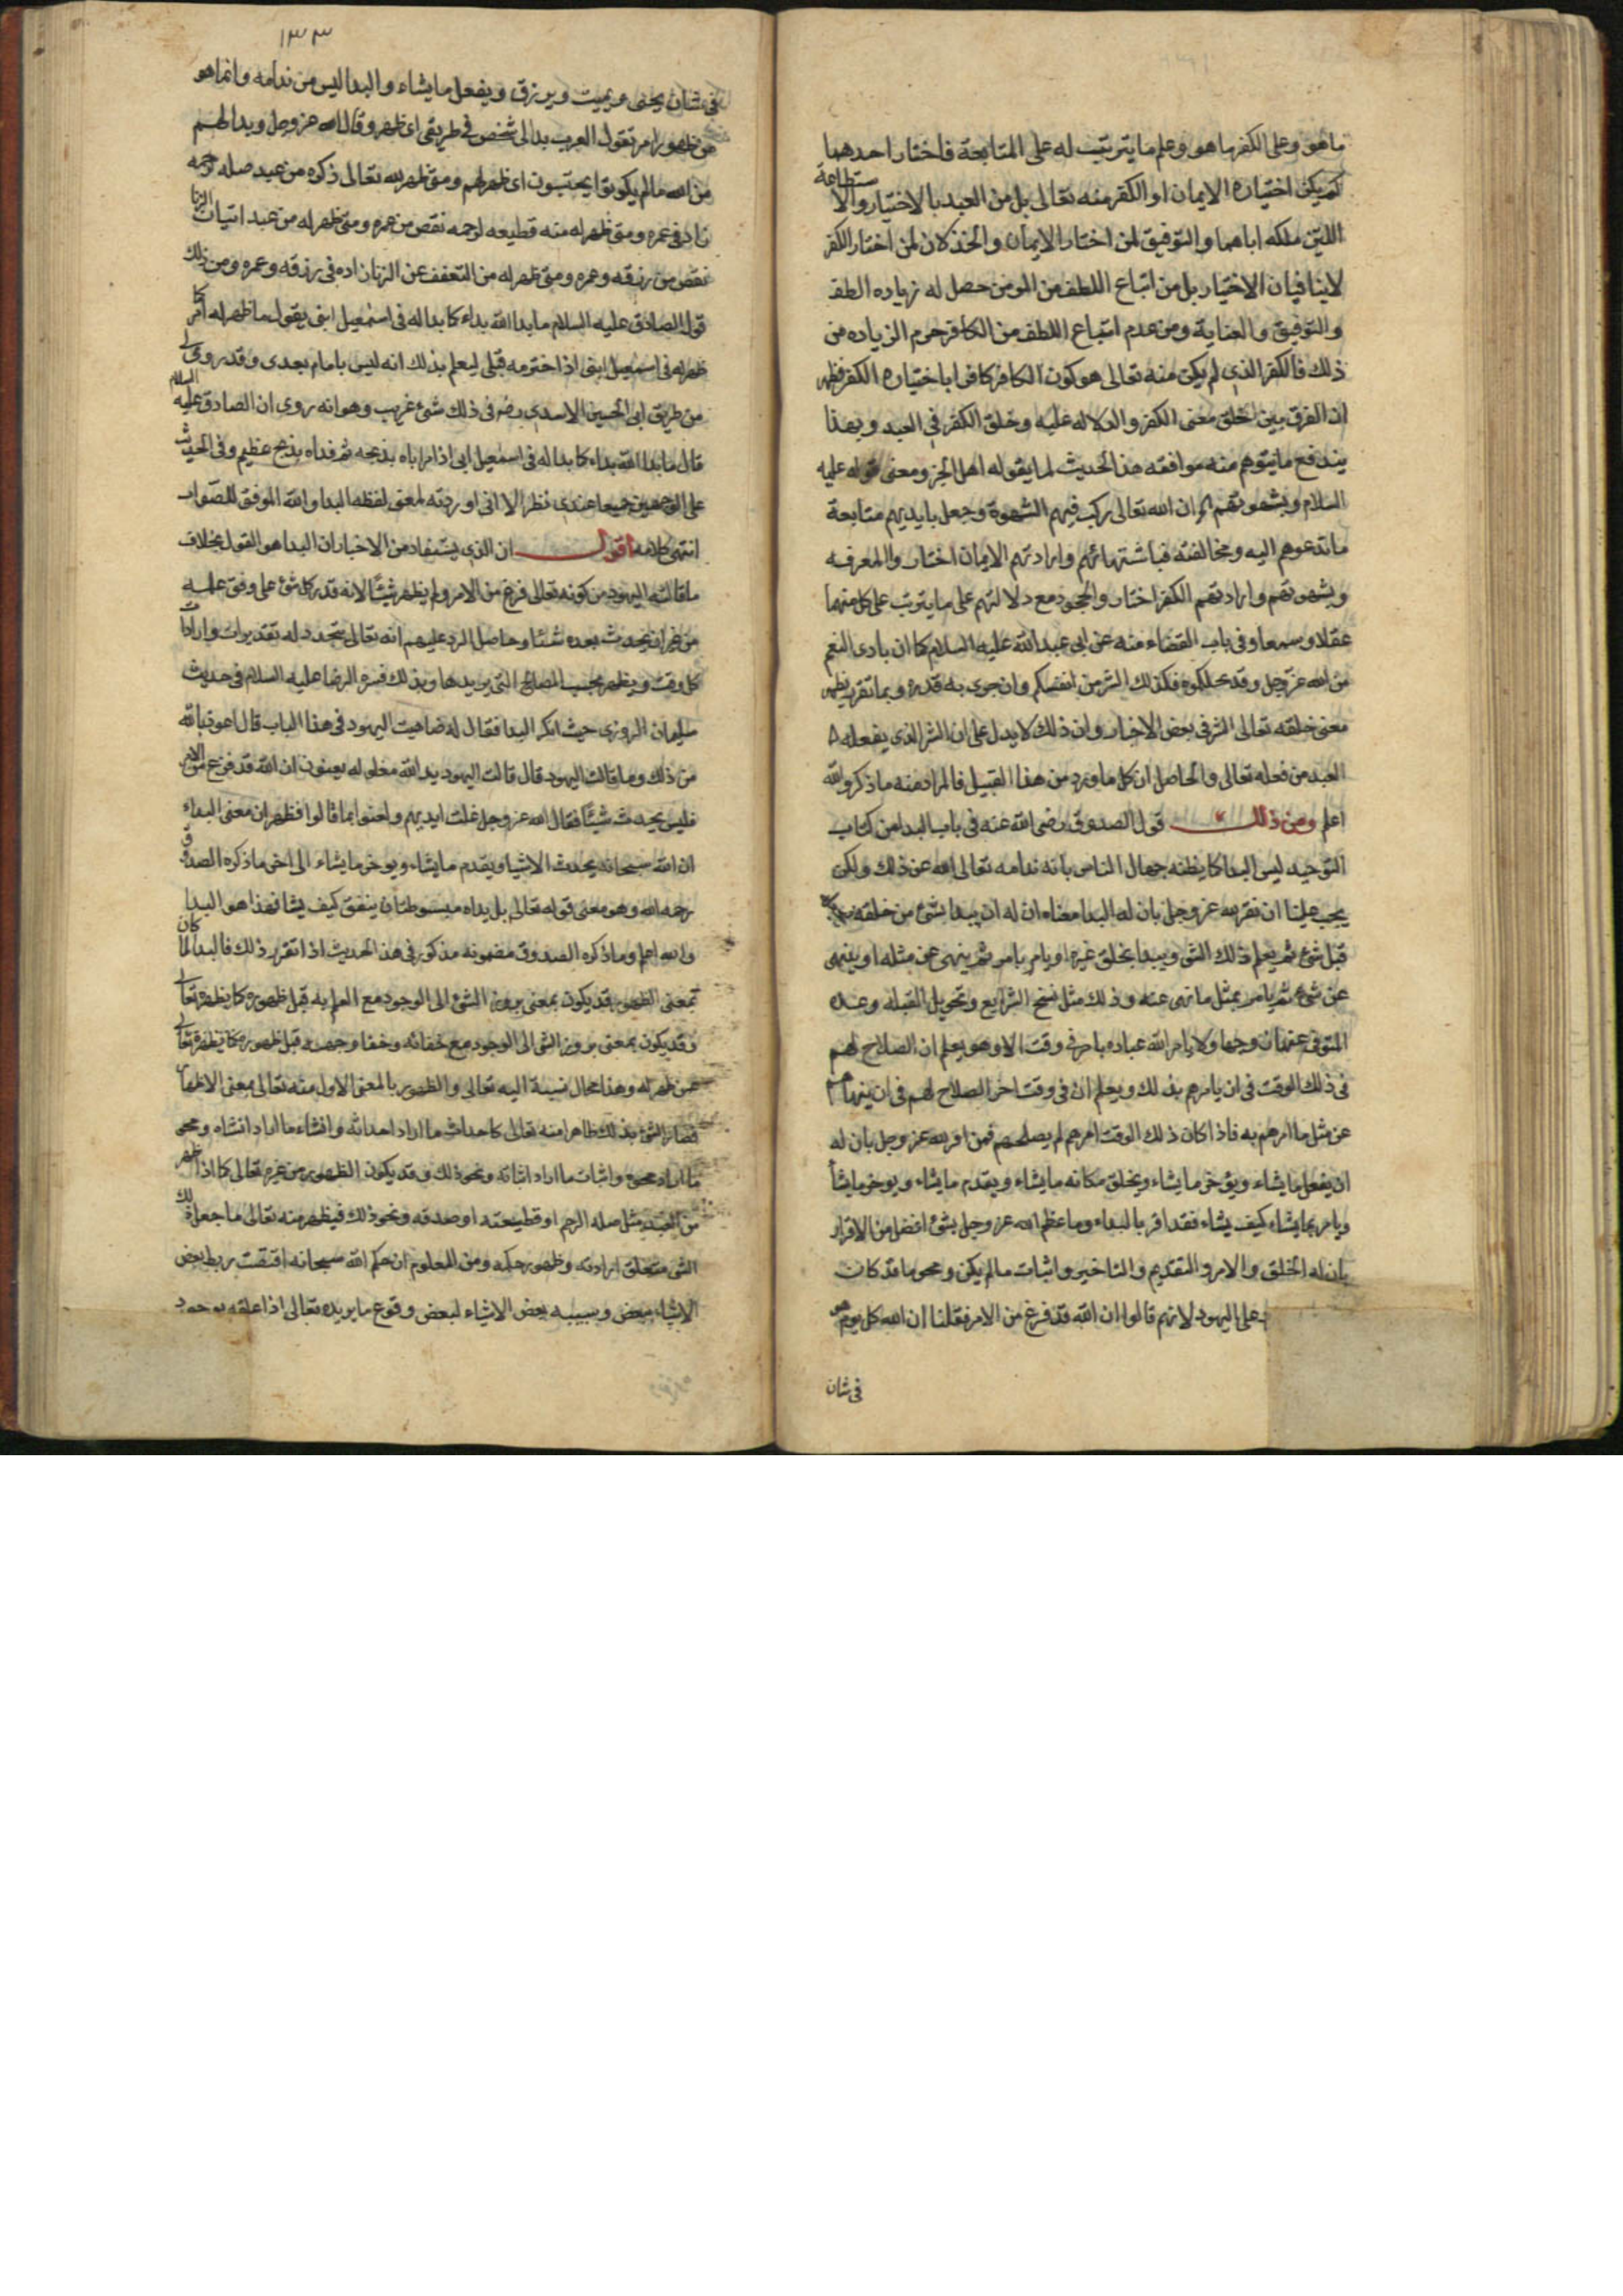 ماهو وعلى الكفر ما هو وعلم ما يترتب له على المتابعة فاختار احدهما
لم يكن اختياره الايمان او الكفر منه تعالى بل من العبد بالاختيار والاستطاعة
اللتين ملكه اياهما والتوفيق لمن اختار الايمان والخذلان لمن اختار الكفر
لاينافيان الاختيار بل من اتباع اللطف من المومن حصل له زياده اللطف
والتوفيق والعناية ومن عدم اتباع اللطف من الكافر حرم الزياده من
ذلك فالكفر الذى لم يكن منه تعالى هو كون الكافر كافرا باختياره الكفر فظهر
ان الفرق بين خلق معنى الكفر والدلاله عليه وخلق الكفر فى العبد وبهذا
يندفع ما يتوهم منه موافقه هذا الحديث لما يقوله اهل الجبر ومعنى قوله عليه
السلام وبشهوتهم ان الله تعالى ركب فيهم الشهوة وجعل بايديهم متابعة
ماتدعوهم اليه ومخالفته فباشتهائهم وارادتهم الايمان اختار والمعرفه
وبشهوتهم وارادتهم الكفر اختار والجحود مع دلالتهم على ما يترتب على كل منهما
عقلا وسمعا وفى باب القضاء منه عن ابى عبد الله عليه السلام كما ان بادى النعم
من الله عز وجل وقد نحلكموه فكذلك الشر من انفسكم وان جرى به قدره وبما تقرر يظهر
معنى خلقه تعالى الشر فى بعض الاخبار وان ذلك لا يدل على ان الشر الذى يفعله
العبد من فعله تعالى والحاصل ان كل ما ورد من هذا القبيل فالمراد منه ما ذكر والله
اعلم ومن ذلك قول الصدوق رضى الله عنه فى باب البدا من كتاب
التوحيد ليس البدا كما يظنه جهال الناس بانه ندامه تعالى الله عن ذلك ولكن
يجب علينا ان نقر لله عز وجل بان له البدا معناه ان له ان يبدا بشئ من خلقه
قبل شئ ثم يعدم ذلك الشئ ويبدا بخلق غيره او يامر بامر ثم ينهى عن مثله او ينهى
عن شئ ثم يامر بمثل ما نهى عنه وذلك مثل نسخ الشرايع وتحويل القبله وعده
المتوفى عنها زوجها ولا يامر الله عباده بامر فى وقت الا وهو يعلم ان الصلاح لهم
فى ذلك الوقت فى ان يامرهم بذلك ويعلم ان فى وقت اخر الصلاح لهم فى ان ينهاهم
عن مثل ما امرهم به فاذا كان ذلك الوقت امرهم لم يصلحهم فمن اقر لله عز وجل بان له
ان يفعل ما يشاء ويؤخر ما يشاء ويخلق مكانه ما يشاء ويقدم ما يشاء ويوخر ما يشأ
ويامر بما يشاء كيف يشاء فقد اقر بالبداء وما عظم الله عز وجل بشئ افضل من الاقرار
بان له الخلق والامر والتقديم والتاخير واثبات ما لم يكن ومحو ما قد كان
على اليهود لانهم قالوا ان الله قد فرغ من الامر فقلنا ان الله كل يوم هو
فى شان
١٣٣
فى شان يحيى ويميت ويرزق ويفعل ما يشاء والبدا ليس من ندامه وانما هو
من ظهور امر تقول العرب بدا لى شخص فى طريقى اى ظهر وقال الله عز وجل وبدا لهم
من الله ما لم يكونوا يحتسبون اى ظهر لهم ومتى ظهر لله تعالى ذكره من عبد صله لرحمه
زاد فى عمره ومتى ظهر له منه قطيعه لرحمه نقص من عمره ومتى ظهر له من عبد اتيان الزنا
نقص من رزقه وعمره ومتى ظهر له من التعفف عن الزنا زاده فى رزقه وعمره ومن ذلك
قول الصادق عليه السلام ما بدا لله بداء كما بدا له فى اسمعيل ابنى يقول ما ظهر له امر كما
ظهر له فى اسمعيل ابنى اذ اخترمه قبلى ليعلم بذلك انه ليس بامام بعدى وقد روى لى
من طريق ابى الحسين الاسدى رضه فى ذلك شئ غريب وهو انه روى ان الصادق عليه السلام
قال ما بدا لله بداء كما بدا له فى اسمعيل ابى اذ امر اباه بذبحه ثم فداه بذبح عظيم وفى الحديث
على الوجهين جميعا عندى نظر الا انى اوردته لمعنى لفظه البدا والله الموفق للصواب
انتهى كلامه اقول ان الذى يستفاد من الاخبار ان البدا هو القول بخلاف
ما قالته اليهود من كونه تعالى فرغ من الامر ولم يظهر شيئا لانه قدر كل شئ على وفق علمه
من غير ان يحدث بعده شئا وحاصل الرد عليهم انه تعالى يتجدد له تقديرات وارادات
كل وقت ويظهر بحسب المصالح التى يريدها وبذلك فسره الرضا عليه السلام فى حديث
سليمان المروزى حيث انكر البدا فقال له ضاهيت اليهود فى هذا الباب قال اعوذ بالله
من ذلك وما قالت اليهود قال قالت اليهود يد الله مغلوله يعنون ان الله قد فرغ من الامر
فليس يحدث شيئا فقال الله عز وجل غلت ايديهم ولعنوا بما قالوا فظهر ان معنى البداء
ان الله سبحانه يحدث الاشيا ويقدم ما يشاء ويوخر ما يشاء الى اخر ما ذكره الصدوق
رحمه الله وهو معنى قوله تعالى بل يداه مبسوطتان ينفق كيف يشا فهذا هو البدا
والله اعلم وما ذكره الصدوق مضمونه مذكور فى هذا الحديث اذا تقرر ذلك فالبدا لما كان
بمعنى الظهور قد يكون بمعنى بروز الشئ الى الوجود مع العلم به قبل ظهوره كما يظهره تعالى
وقد يكون بمعنى بروز الشئ الى الوجود مع خفائه وخفا وجهه قبل ظهوره كما يظهره تعالى
عمن ظهر له وهذا محال نسبة اليه تعالى والظهور بالمعنى الاول منه تعالى بمعنى الاظهار
فصار الشئ بذلك ظاهرا منه تعالى كاحداث ما اراد احداثه وانشاء ما اراد انشاه ومحو
ما اراد محوه واثبات ما اراد اثباته ونحو ذلك وقد يكون الظهور من غيره تعالى كما اذا ظهر
من العبد مثل صله الرحم او قطيعته او صدقه ونحو ذلك فيظهر منه تعالى ما جعل ذلك
الشئ متعلق ارادته وظهور حكمه ومن المعلوم ان حكم الله سبحانه اقتضت ربط بعض
الاشياء ببعض وسببيه بعض الاشياء لبعض وقوع ما يريده تعالى اذا علقه بوجود